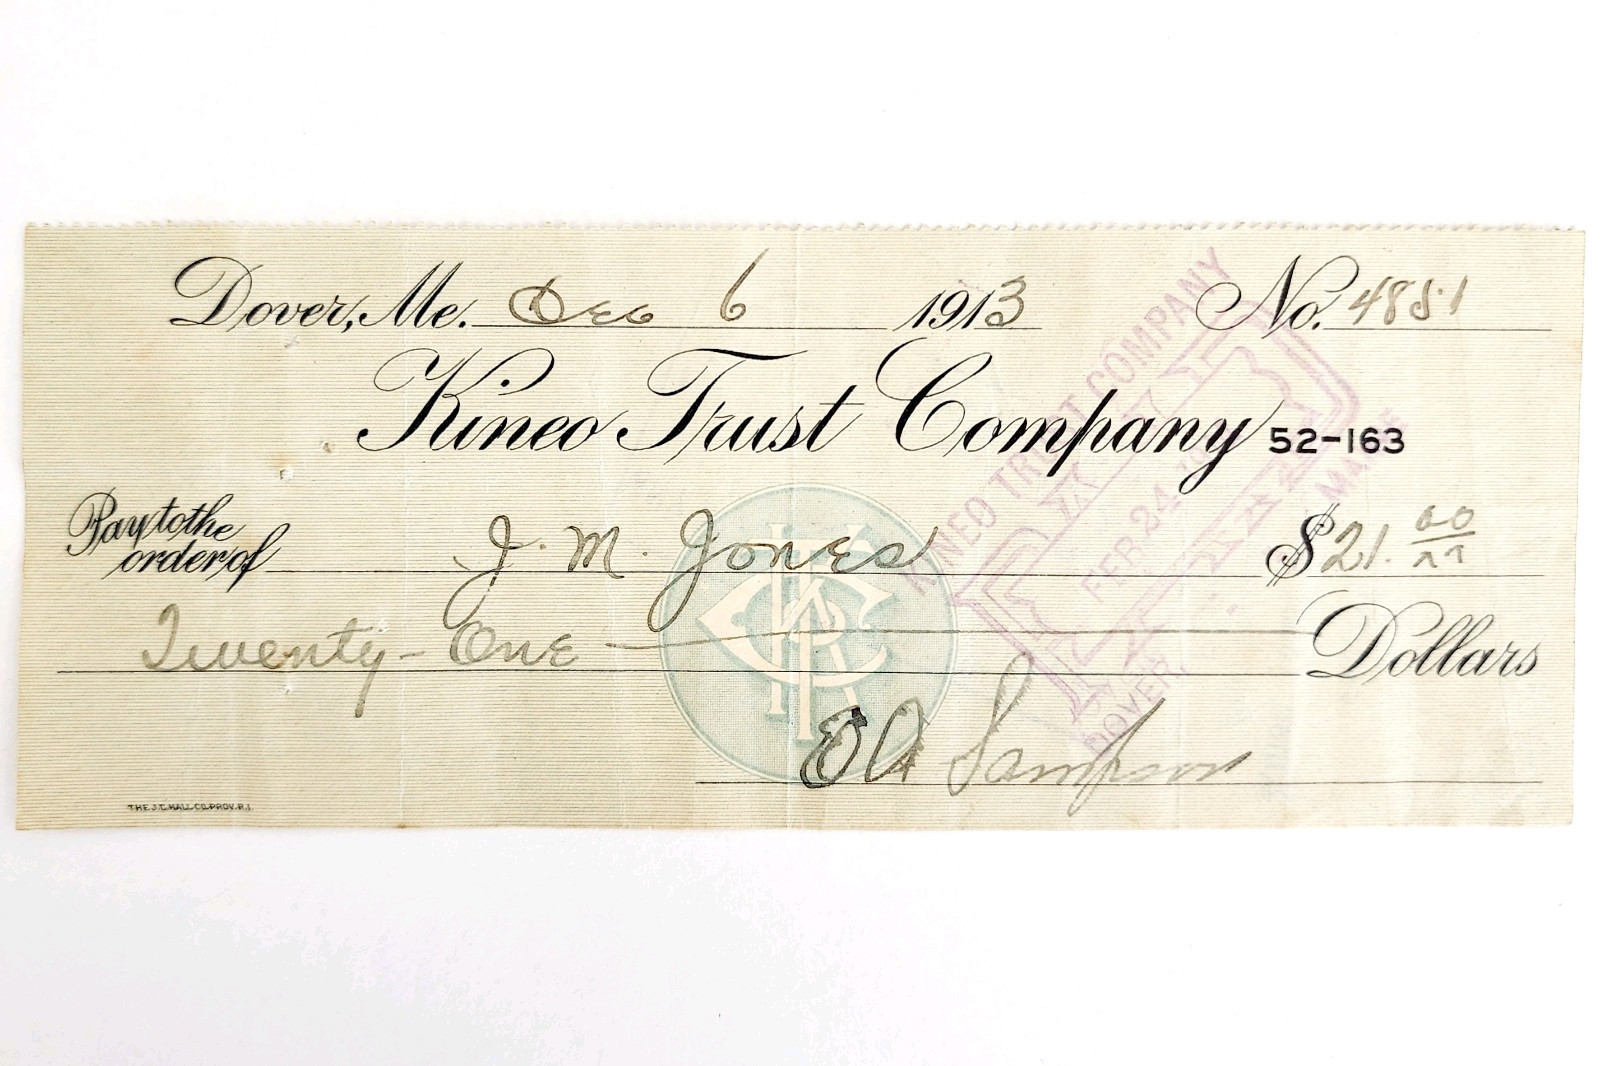 Dover, Me. Dec 6 1913 No. 4851
Kineo Trust Company 52-163
Pay to the order of J. M. Jones $21. 00/xx
Twenty-One Dollars
Sampson
THE J.C. HALL CO. PROV. R.I.
KINEO TRUST COMPANY
PAID
FEB 24
DOVER, MAINE
KTC